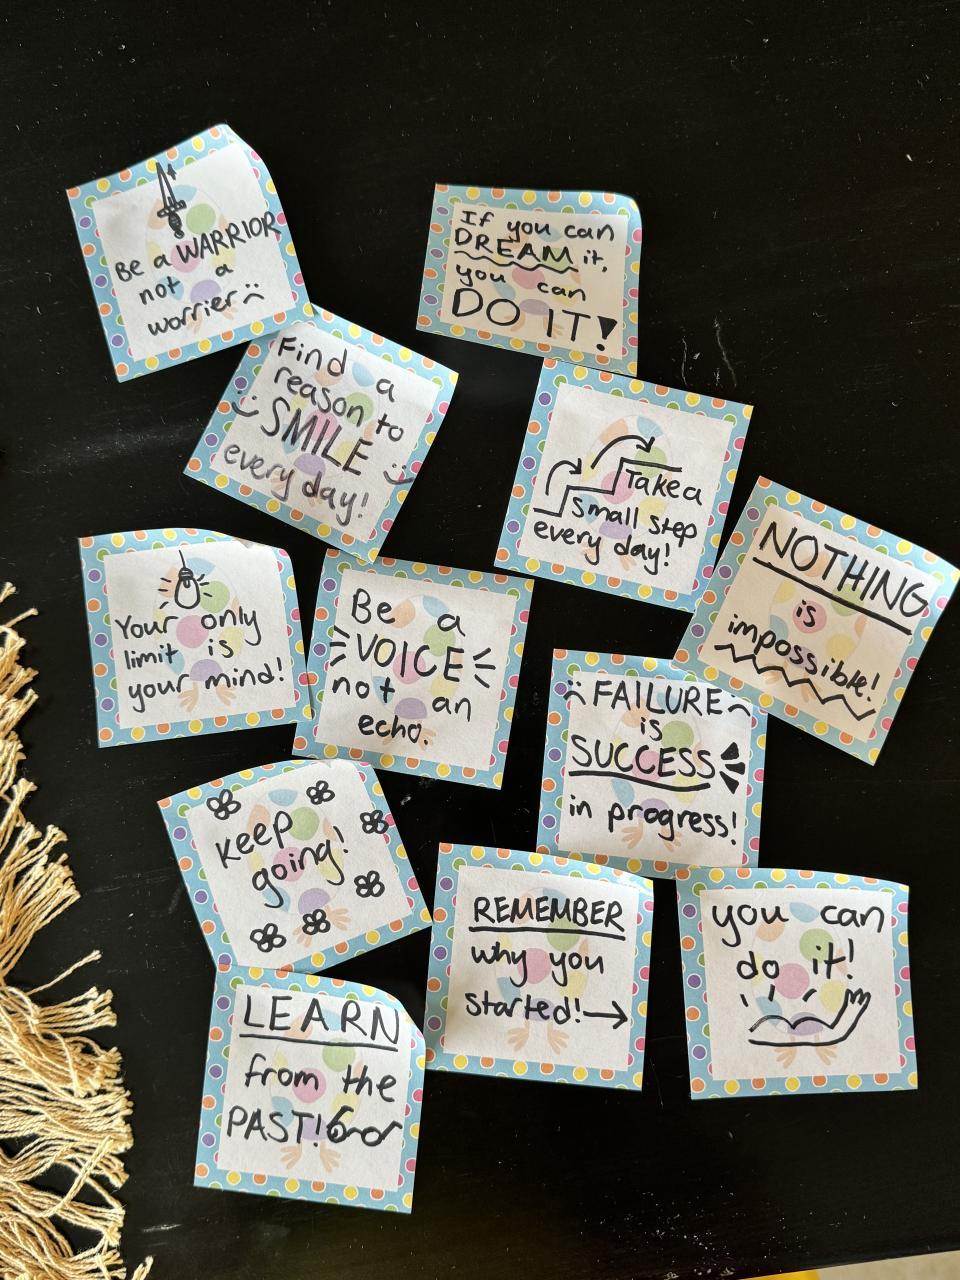 Be a WARRIOR
not a
worrier
If you can
DREAM it,
you can
DO IT!
Find a
reason to
SMILE
every day!
Take a
small step
every day!
NOTHING
is
impossible!
Your only
limit is
your mind!
Be a
VOICE
not an
echo.
FAILURE
is
SUCCESS
in progress!
Keep
going!
REMEMBER
why you
started!→
you can
do it!
LEARN
from the
PAST!